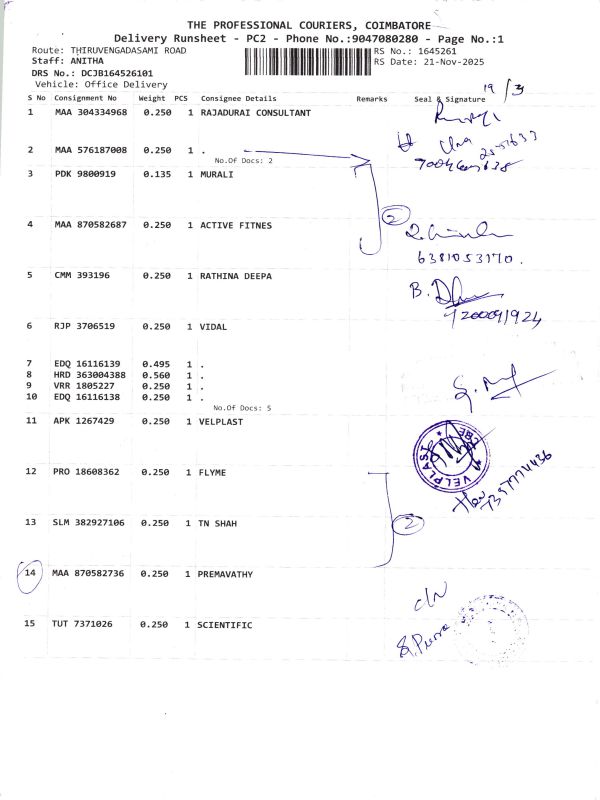 THE PROFESSIONAL COURIERS, COIMBATORE
Delivery Runsheet - PC2 - Phone No.:9047080280 - Page No.:1
Route: THIRUVENGADASAMI ROAD
RS No.: 1645261
Staff: ANITHA
RS Date: 21-Nov-2025
DRS No.: DCJB164526101
Vehicle: Office Delivery
19/3
S No Consignment No Weight PCS Consignee Details Remarks Seal & Signature
1 MAA 304334968 0.250 1 RAJADURAI CONSULTANT
2 MAA 576187008 0.250 1 .
No.Of Docs: 2
3 PDK 9800919 0.135 1 MURALI
2
4 MAA 870582687 0.250 1 ACTIVE FITNES
6381053170.
5 CMM 393196 0.250 1 RATHINA DEEPA
B.
6 RJP 3706519 0.250 1 VIDAL
7 EDQ 16116139 0.495 1 .
8 HRD 363004388 0.560 1 .
9 VRR 1805227 0.250 1 .
10 EDQ 16116138 0.250 1 .
No.Of Docs: 5
11 APK 1267429 0.250 1 VELPLAST
VELPLAST
12 PRO 18608362 0.250 1 FLYME
13 SLM 382927106 0.250 1 TN SHAH
2
14 MAA 870582736 0.250 1 PREMAVATHY
15 TUT 7371026 0.250 1 SCIENTIFIC